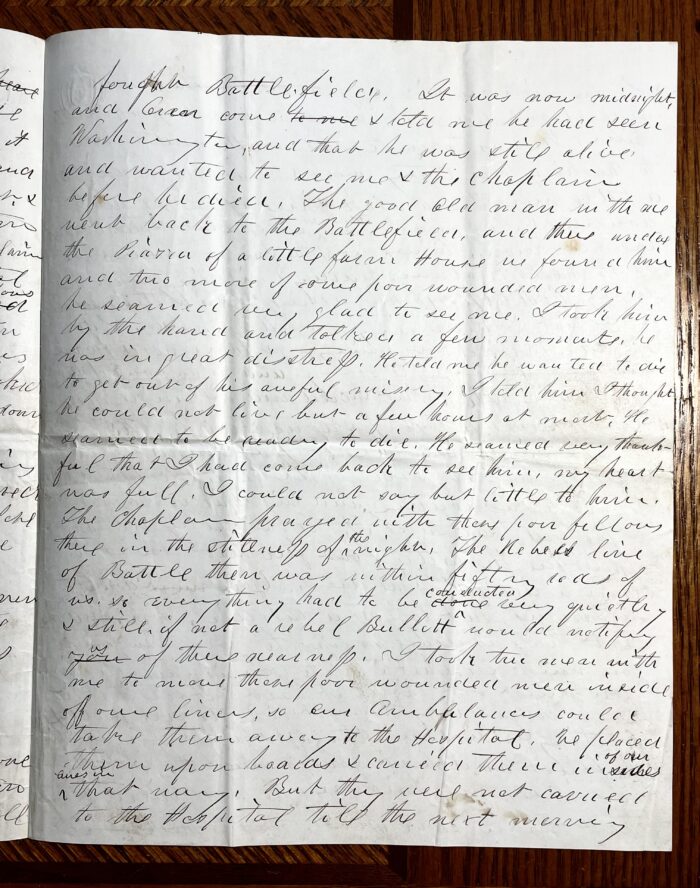 fought Battlefield. It was now midnight,
and come to me & told me he had seen
Washington, and that he was still alive
and wanted to see me & the Chaplain
before he died. The good old man with me
went back to the Battlefield, and there under
the Piazza of a little farm House we found him
and two more of some poor wounded men.
he seamed very glad to see me. I took him
by the hand and talked a few moments. he
was in great distress. He told me he wanted to die
to get out of his aweful misery. I told him I thought
he could not live but a few hours at most. He
seamed to be ready to die. He seamed very thank-
ful that I had come back to see him, my heart
was full. I could not say but little to him.
The Chaplain prayed with these poor fellows
there in the stilness of the night. The Rebels line
of Battle then was within fifty rods of
us. so everything had to be done conducted very quietly
& still. if not a rebel Bullitt would notify
you us of their nearness. I took two men with
me to move these poor wounded men inside
of our lines, so our Ambulances could
take them away to the Hospital. We placed
them upon boards & carried them in
that way. But they were not carried
to the Hospital till the next morning